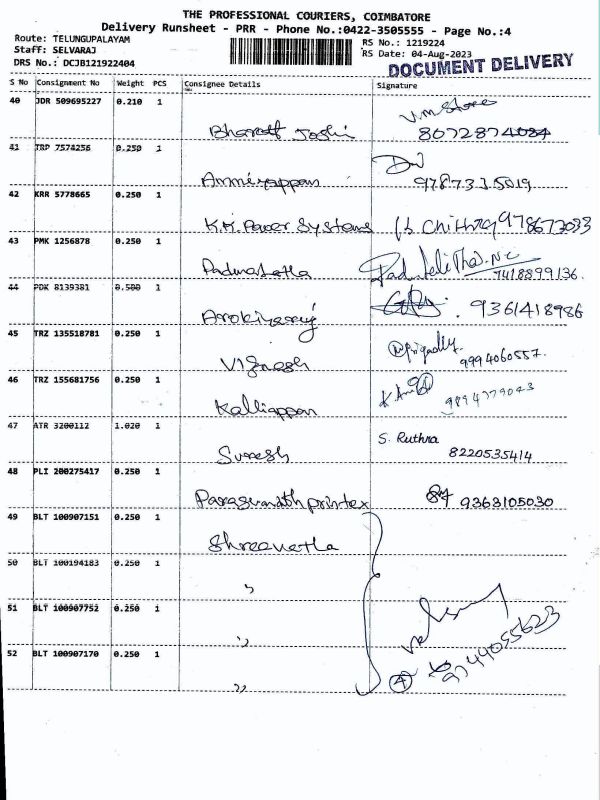 THE PROFESSIONAL COURIERS, COIMBATORE
Delivery Runsheet - PRR - Phone No.:0422-3505555 - Page No.:4
Route: TELUNGUPALAYAM
Staff: SELVARAJ
DRS No.: DCJB121922404
RS No.: 1219224
RS Date: 04-Aug-2023
DOCUMENT DELIVERY
S No Consignment No Weight PCS Consignee Details Signature
40 JDR 509695227 0.210 1
Bharath Joshi V.M Store
8072874084
41 TRP 7574256 0.250 1
Ammeyappan 9787335019
42 KRR 5778665 0.250 1
K.M. Power Systems
43 PMK 1256878 0.250 1
Padmalatha 7418899136.
44 PDK 8139381 0.500 1
Arokiyaraj 9361418986
45 TRZ 135518781 0.250 1
Vignesh 9994060557.
46 TRZ 155681756 0.250 1
Kalliappan 9894779043
47 ATR 3200112 1.020 1
S. Ruthra
Suresh 8220535414
48 PLI 200275417 0.250 1
Parasvanath printex 9363105030
49 BLT 100907151 0.250 1
Shreenetla
50 BLT 100194183 0.250 1
"
51 BLT 100907752 0.250 1
"
52 BLT 100907170 0.250 1
"
4
9744055623